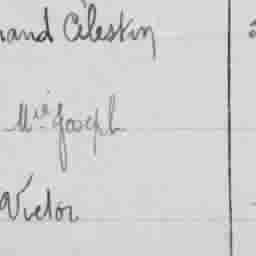 and Célestin
Mie Joseph
Victor